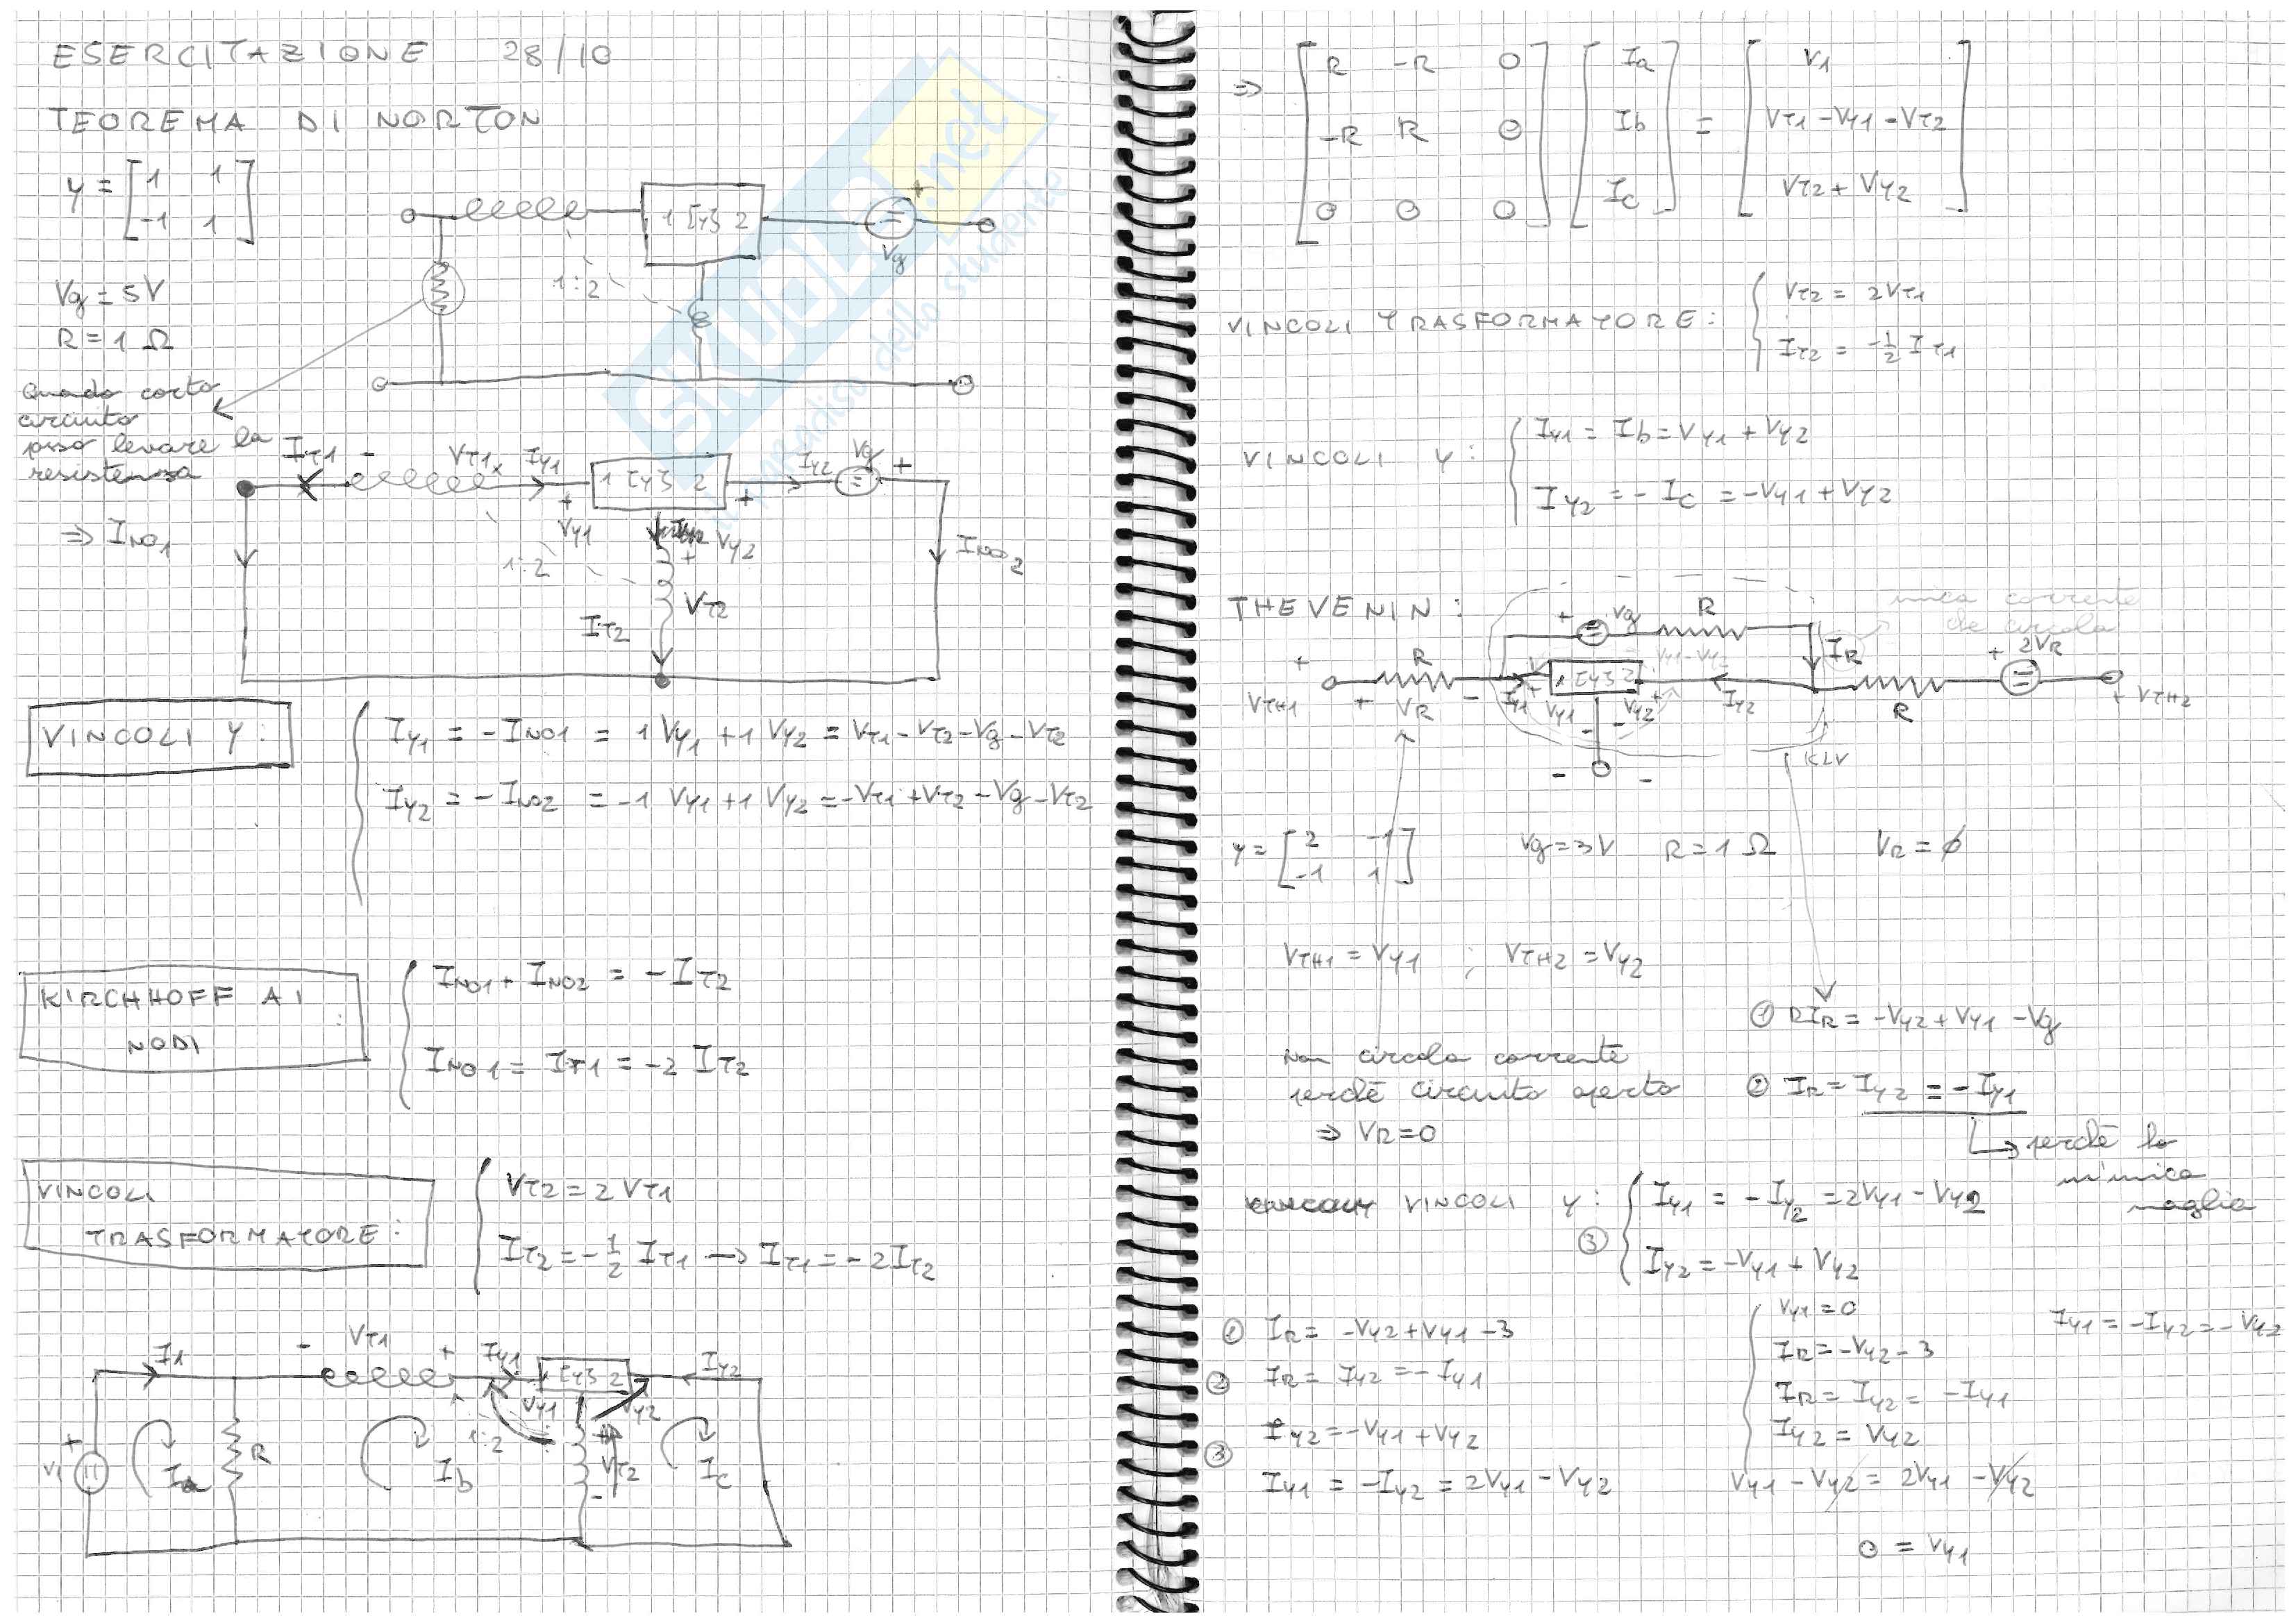 ESERCITAZIONE 28/10
TEOREMA DI NORTON
y = [1 1
-1 1]
Vg = 5V
R = 1 Ω
1 [y] 2
Vg
+
1:2
Quando corto
circuito
posso levare la
resistenza
IT1 - VT1 IY1 1 [y] 2 IY2 Vg +
+ VY1 + VY2
⇒ INO1
1:2
INO2
VT2
IT2
VINCOLI Y:
IY1 = -INO1 = 1 VY1 + 1 VY2 = VT1 - VT2 - Vg - VT2
IY2 = -INO2 = -1 VY1 + 1 VY2 = -VT1 + VT2 - Vg - VT2
KIRCHHOFF AI
NODI :
INO1 + INO2 = -IT2
INO1 = IT1 = -2 IT2
VINCOLI
TRASFORMATORE:
VT2 = 2 VT1
IT2 = -1/2 IT1 → IT1 = -2IT2
I1 - VT1 + IY1 1 [y] 2 IY2
VY1 VY2
1:2
+ V1 Ia R Ib + VT2 - Ic
⇒ [R -R 0
-R R 0
0 0 0] [Ia
Ib
Ic] = [V1
VT1 - VY1 - VT2
VT2 + VY2]
VINCOLI TRASFORMATORE:
VT2 = 2VT1
IT2 = -1/2 IT1
VINCOLI Y:
IY1 = Ib = VY1 + VY2
IY2 = -Ic = -VY1 + VY2
THEVENIN:
+ Vg R
unica corrente
che circola
IR
VY1-VY2
+ R 1 [y] 2 + 2VR
VTH1 + VR - IY1 VY1 VY2 IY2 R + VTH2
- - -
KLV
y = [2 -1
-1 1]
Vg = 3V R = 1 Ω VR = ∅
VTH1 = VY1 ; VTH2 = VY2
① RIR = -VY2 + VY1 - Vg
Non circola corrente
perchè circuito aperto
⇒ VR = 0
② IR = IY2 = -IY1
↳ perchè la
unica
maglia
VINCOLI Y:
③ IY1 = -IY2 = 2VY1 - VY2
IY2 = -VY1 + VY2
① IR = -VY2 + VY1 - 3
② IR = IY2 = -IY1
③ IY2 = -VY1 + VY2
IY1 = -IY2 = 2VY1 - VY2
VY1 = 0
IR = -VY2 - 3
IR = IY2 = -IY1
IY2 = VY2
IY1 = -IY2 = -VY2
VY1 - VY2 = 2VY1 - VY2
0 = VY1
SKUOLA.net
il paradiso dello studente